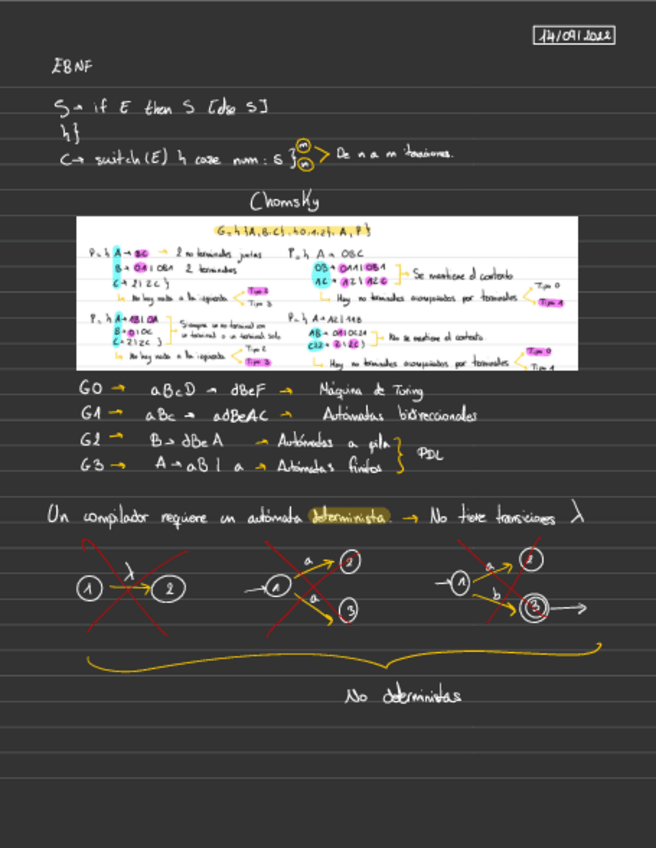 14/09/2022
EBNF
S → if E then S [else S]
{ }
C → switch(E) { case num : S } m n > De n a m iteraciones.
Chomsky
G = { {A, B, C}, {0, 1, 2}, A, P }
P = { A → BC → 2 no terminales juntos
B → 01 | 0B1 2 terminales
C → 2 | 2C }
No hay nada a la izquierda Tipo 2
Tipo 3
P = { A → 0BC
0B → 011 | 0B1
1C → 12 | 12C
Se mantiene el contexto
Hay no terminales acompañados por terminales Tipo 0
Tipo 1
P = { A → 1B | 0A
B → 0 | 0C
C → 2 | 2C }
Siempre un no terminal con
un terminal o un terminal solo
No hay nada a la izquierda Tipo 2
Tipo 3
No se mantiene el contexto
Hay no terminales acompañados por terminales Tipo 0
Tipo 1
G0 → aBcD → dBeF → Máquina de Turing
G1 → aBc → adBeAC → Autómatas bidireccionales
G2 → B → dBeA → Autómatas a pila
G3 → A → aB | a → Autómatas finitos
PDL
Un compilador requiere un autómata determinista. → No tiene transiciones λ
1 λ 2
1 a 2 a 3
1 a 2 b 3
No deterministas